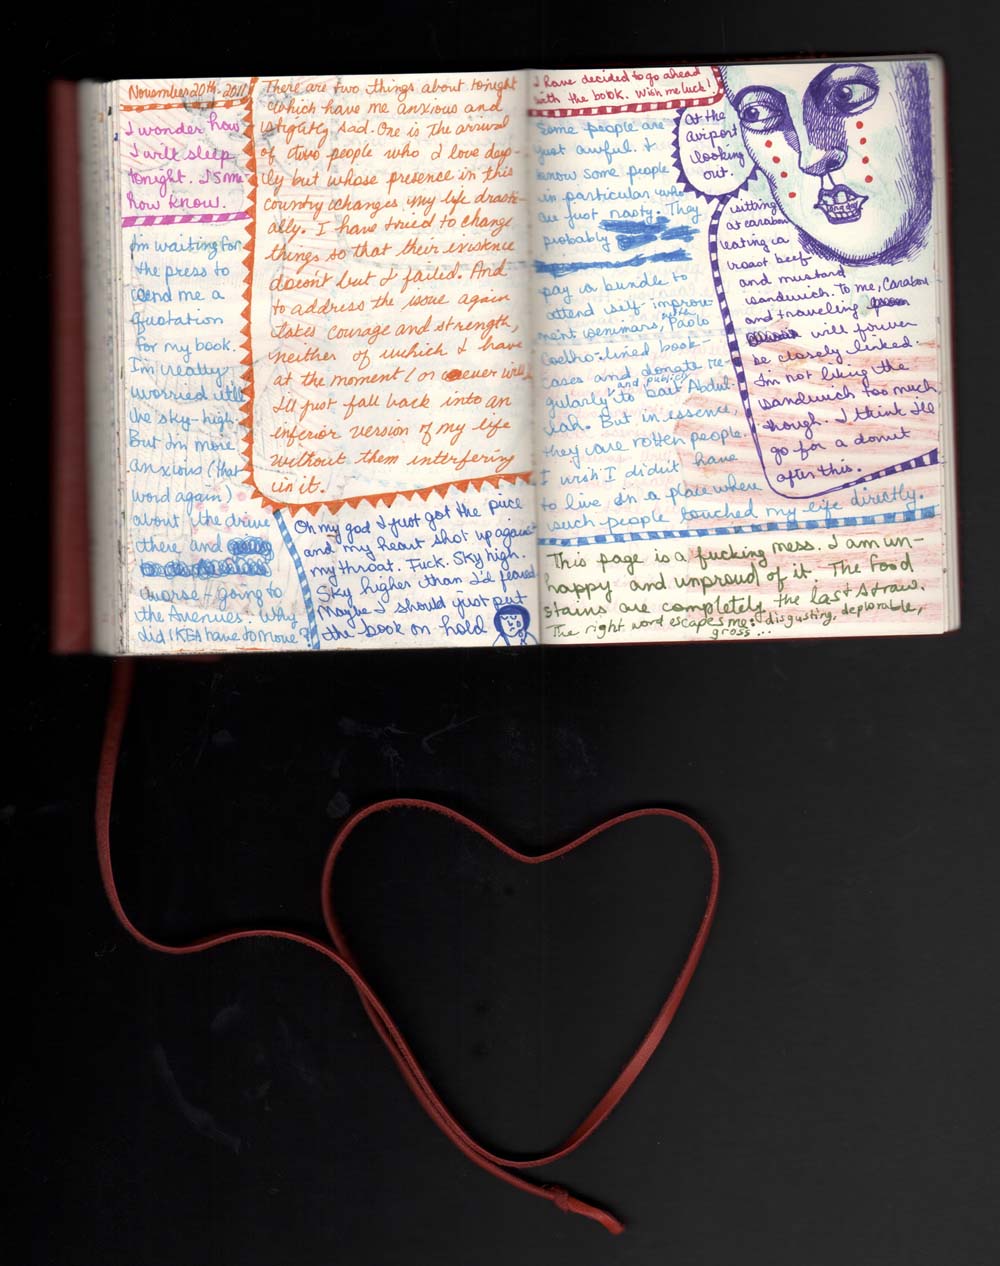 November 20th 2011
I wonder how
I will sleep
tonight. I some
how know.
I'm waiting for
the press to
send me a
quotation
for my book.
I'm really
worried it'll
be sky-high.
But I'm more
anxious (that
word again)
about the drive
there and
worse - going to
the Avenues. Why
did IKEA have to move?
There are two things about tonight
which have me anxious and
slightly sad. One is the arrival
of two people who I love deep-
ly but whose presence in this
country changes my life drastic-
ally. I have tried to change
things so that their existence
doesn't but I failed. And
to address the issue again
takes courage and strength,
neither of which I have
at the moment (or ever will,
I'll just fall back into an
inferior version of my life
without them interfering
in it.
Oh my god I just got the price
and my heart shot up against
my throat. Fuck. Sky high.
Sky higher than I'd feared
Maybe I should just put
the book on hold
I have decided to go ahead
with the book. Wish me luck!
Some people are
just awful. I
know some people
in particular who
are just nasty. They
probably
pay a bundle to
attend self-improve-
ment seminars, Paolo
Coelho-lined book-
cases and donate re-
gularly and publicly to Bait Abdul-
lah. But in essence,
they are rotten people.
I wish I didn't have
to live in a place where
such people touched my life directly.
At the
airport
looking
out.
sitting
at carabou
eating a
roast beef
and mustard
sandwich. To me, Carabou
and travelling
will forever
be closely linked.
I'm not liking the
sandwich too much
though. I think I'll
go for a donut
after this.
This page is a fucking mess. I am un-
happy and unproud of it. The food
stains are completely the last straw.
The right word escapes me: disgusting, deplorable,
gross...